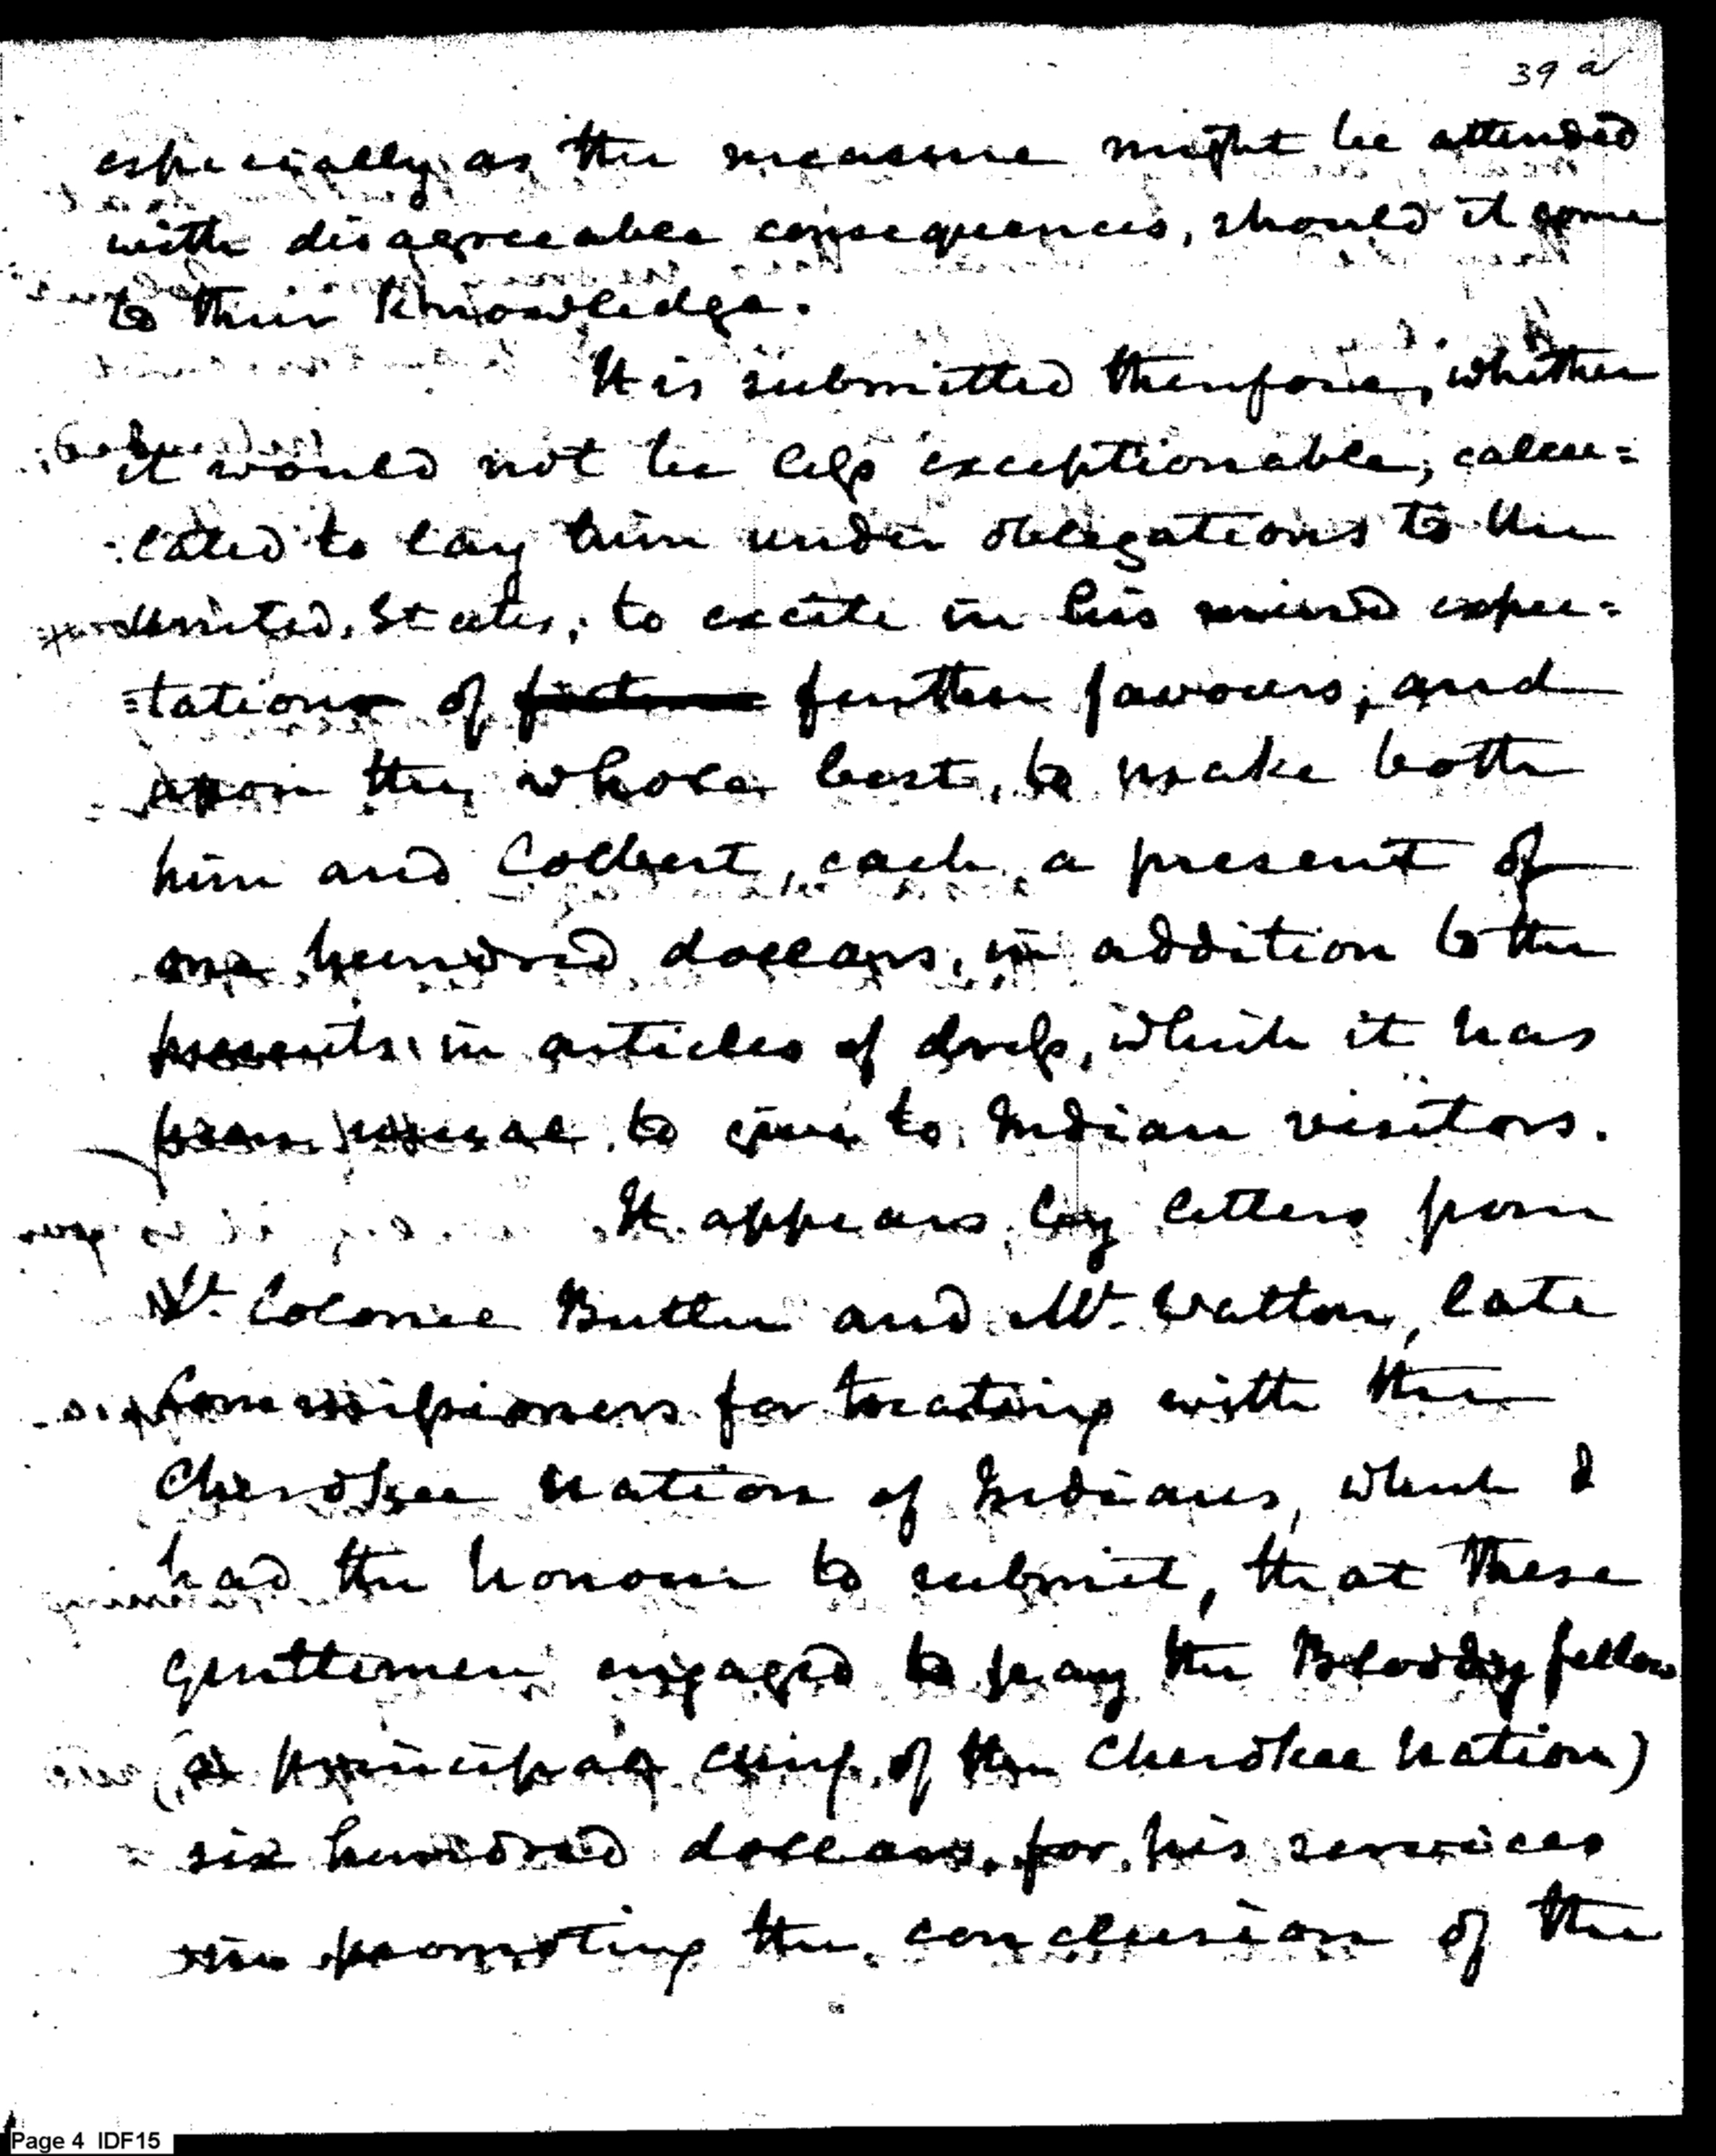 39 a
especially as the measure might be attended
with disagreeable consequences, should it come
to their knowledge.
It is submitted therefore, whether
it would not be less exceptionable, calcu=
:lated to lay him under obligations to the
United States, to excite in his mind expec=
=tations of further favours, and
upon the whole best, to make both
him and Colbert, each, a present of
one hundred dollars, in addition to the
presents in articles of dress, which it has
been usual to give to Indian visitors.
It appears by letters from
Lt. Colonel Butler and Mr. Walton, late
Commissioners for treating with the
Cherokee nation of Indians, which I
had the honour to submit, that these
gentlemen engaged to pay the Bloody fellow
(a principal chief of the Cherokee nation)
six hundred dollars, for his services
in promoting the conclusion of the
Page 4 IDF15